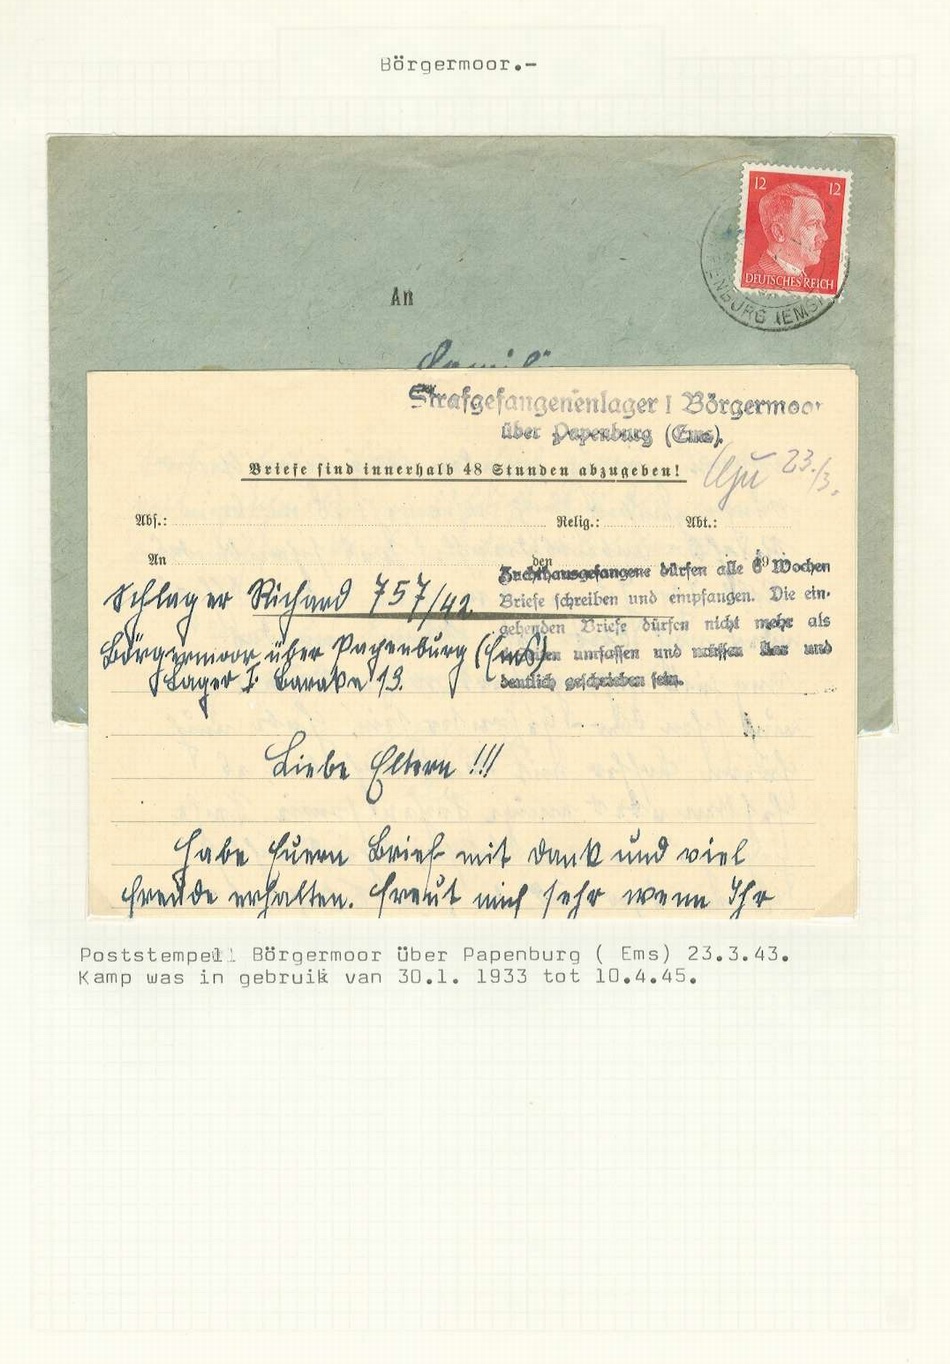 Börgermoor.-
12 12
DEUTSCHES REICH
ENBURG (EMS)
An
Strafgefangenenlager I Börgermoor
über Papenburg (Ems).
Briefe sind innerhalb 48 Stunden abzugeben!
23./3.
Abs.: Relig.: Abt.:
An den 19
Zuchthausgefangene dürfen alle 6 Wochen
Briefe schreiben und empfangen. Die ein-
gehenden Briefe dürfen nicht mehr als
umfassen und müssen klar und
deutlich geschrieben sein.
Schlager Richard 757/42.
Börgermoor über Papenburg (Ems)
Lager I. Barake 13.
Liebe Eltern !!!
Habe Euern Brief mit Dank und viel
Freude erhalten. Freut mich sehr wenn Ihr
Poststempel Börgermoor über Papenburg ( Ems) 23.3.43.
Kamp was in gebruik van 30.1. 1933 tot 10.4.45.